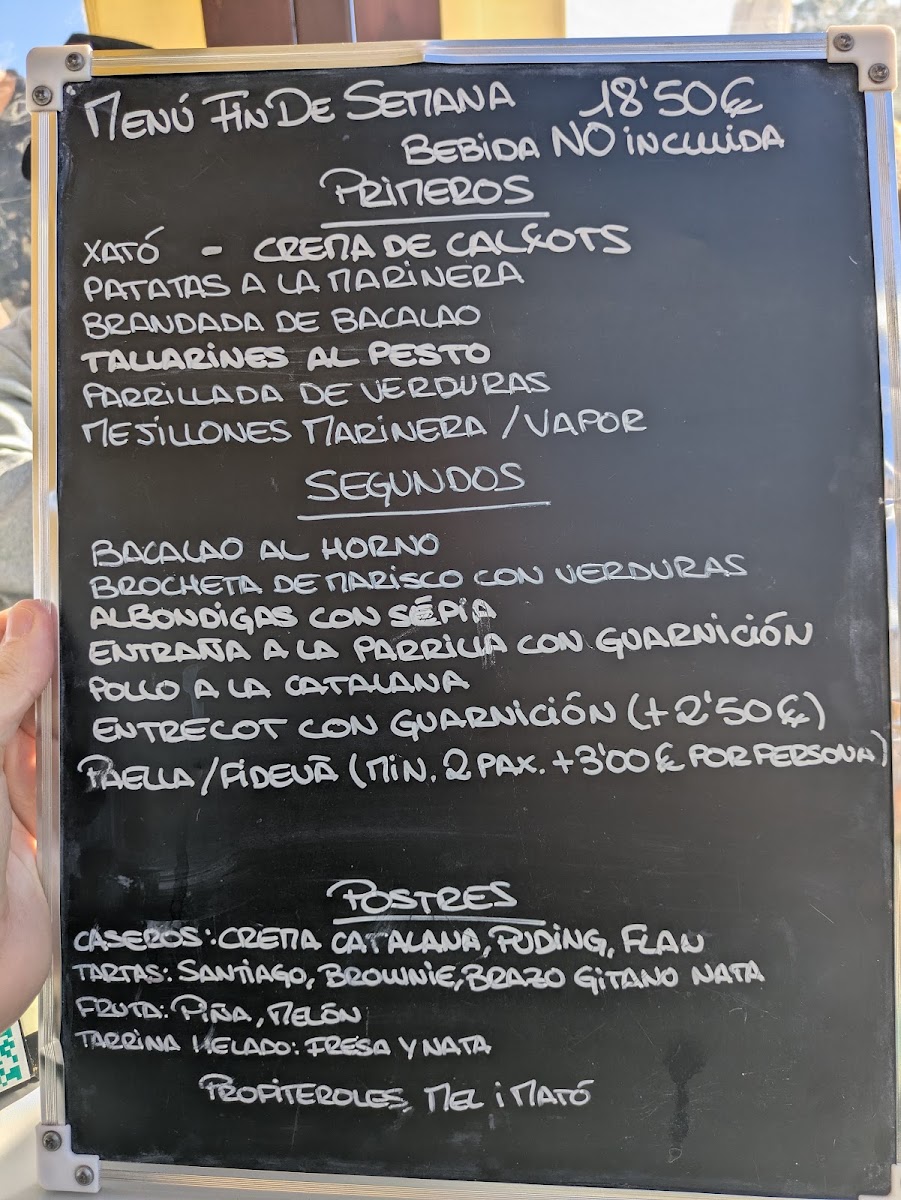 MENÚ FIN DE SEMANA 18'50€
BEBIDA NO INCLUIDA
PRIMEROS
XATÓ - CREMA DE CALÇOTS
PATATAS A LA MARINERA
BRANDADA DE BACALAO
TALLARINES AL PESTO
PARRILLADA DE VERDURAS
MEJILLONES MARINERA / VAPOR
SEGUNDOS
BACALAO AL HORNO
BROCHETA DE MARISCO CON VERDURAS
ALBONDIGAS CON SÉPIA
ENTRAÑA A LA PARRILLA CON GUARNICIÓN
POLLO A LA CATALANA
ENTRECOT CON GUARNICIÓN (+2'50€)
PAELLA / FIDEUÀ (MIN. 2 PAX. +3'00€ POR PERSONA)
POSTRES
CASEROS: CREMA CATALANA, PUDING, FLAN
TARTAS: SANTIAGO, BROWNIE, BRAZO GITANO NATA
FRUTA: PIÑA, MELÓN
TARRINA HELADO: FRESA Y NATA
PROFITEROLES, MEL i MATÓ